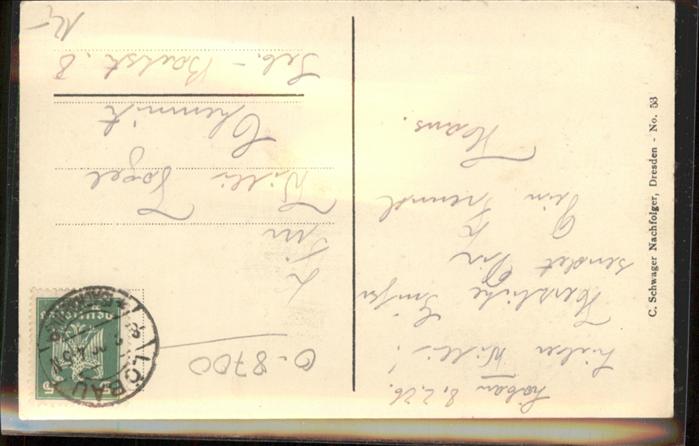 Löbau 8.2.26.
Lieber Willi!
Herzliche Grüße
sendet Dir
Dein Freund
Hans.
Willi Vogel
Chemnitz
Seb.-Bachstr. 8
0-8700
LÖBAU
C. Schwager Nachfolger, Dresden - No. 53